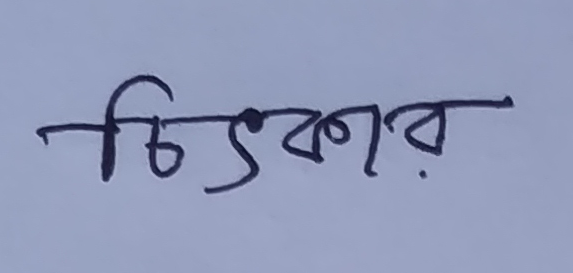 চিৎকার